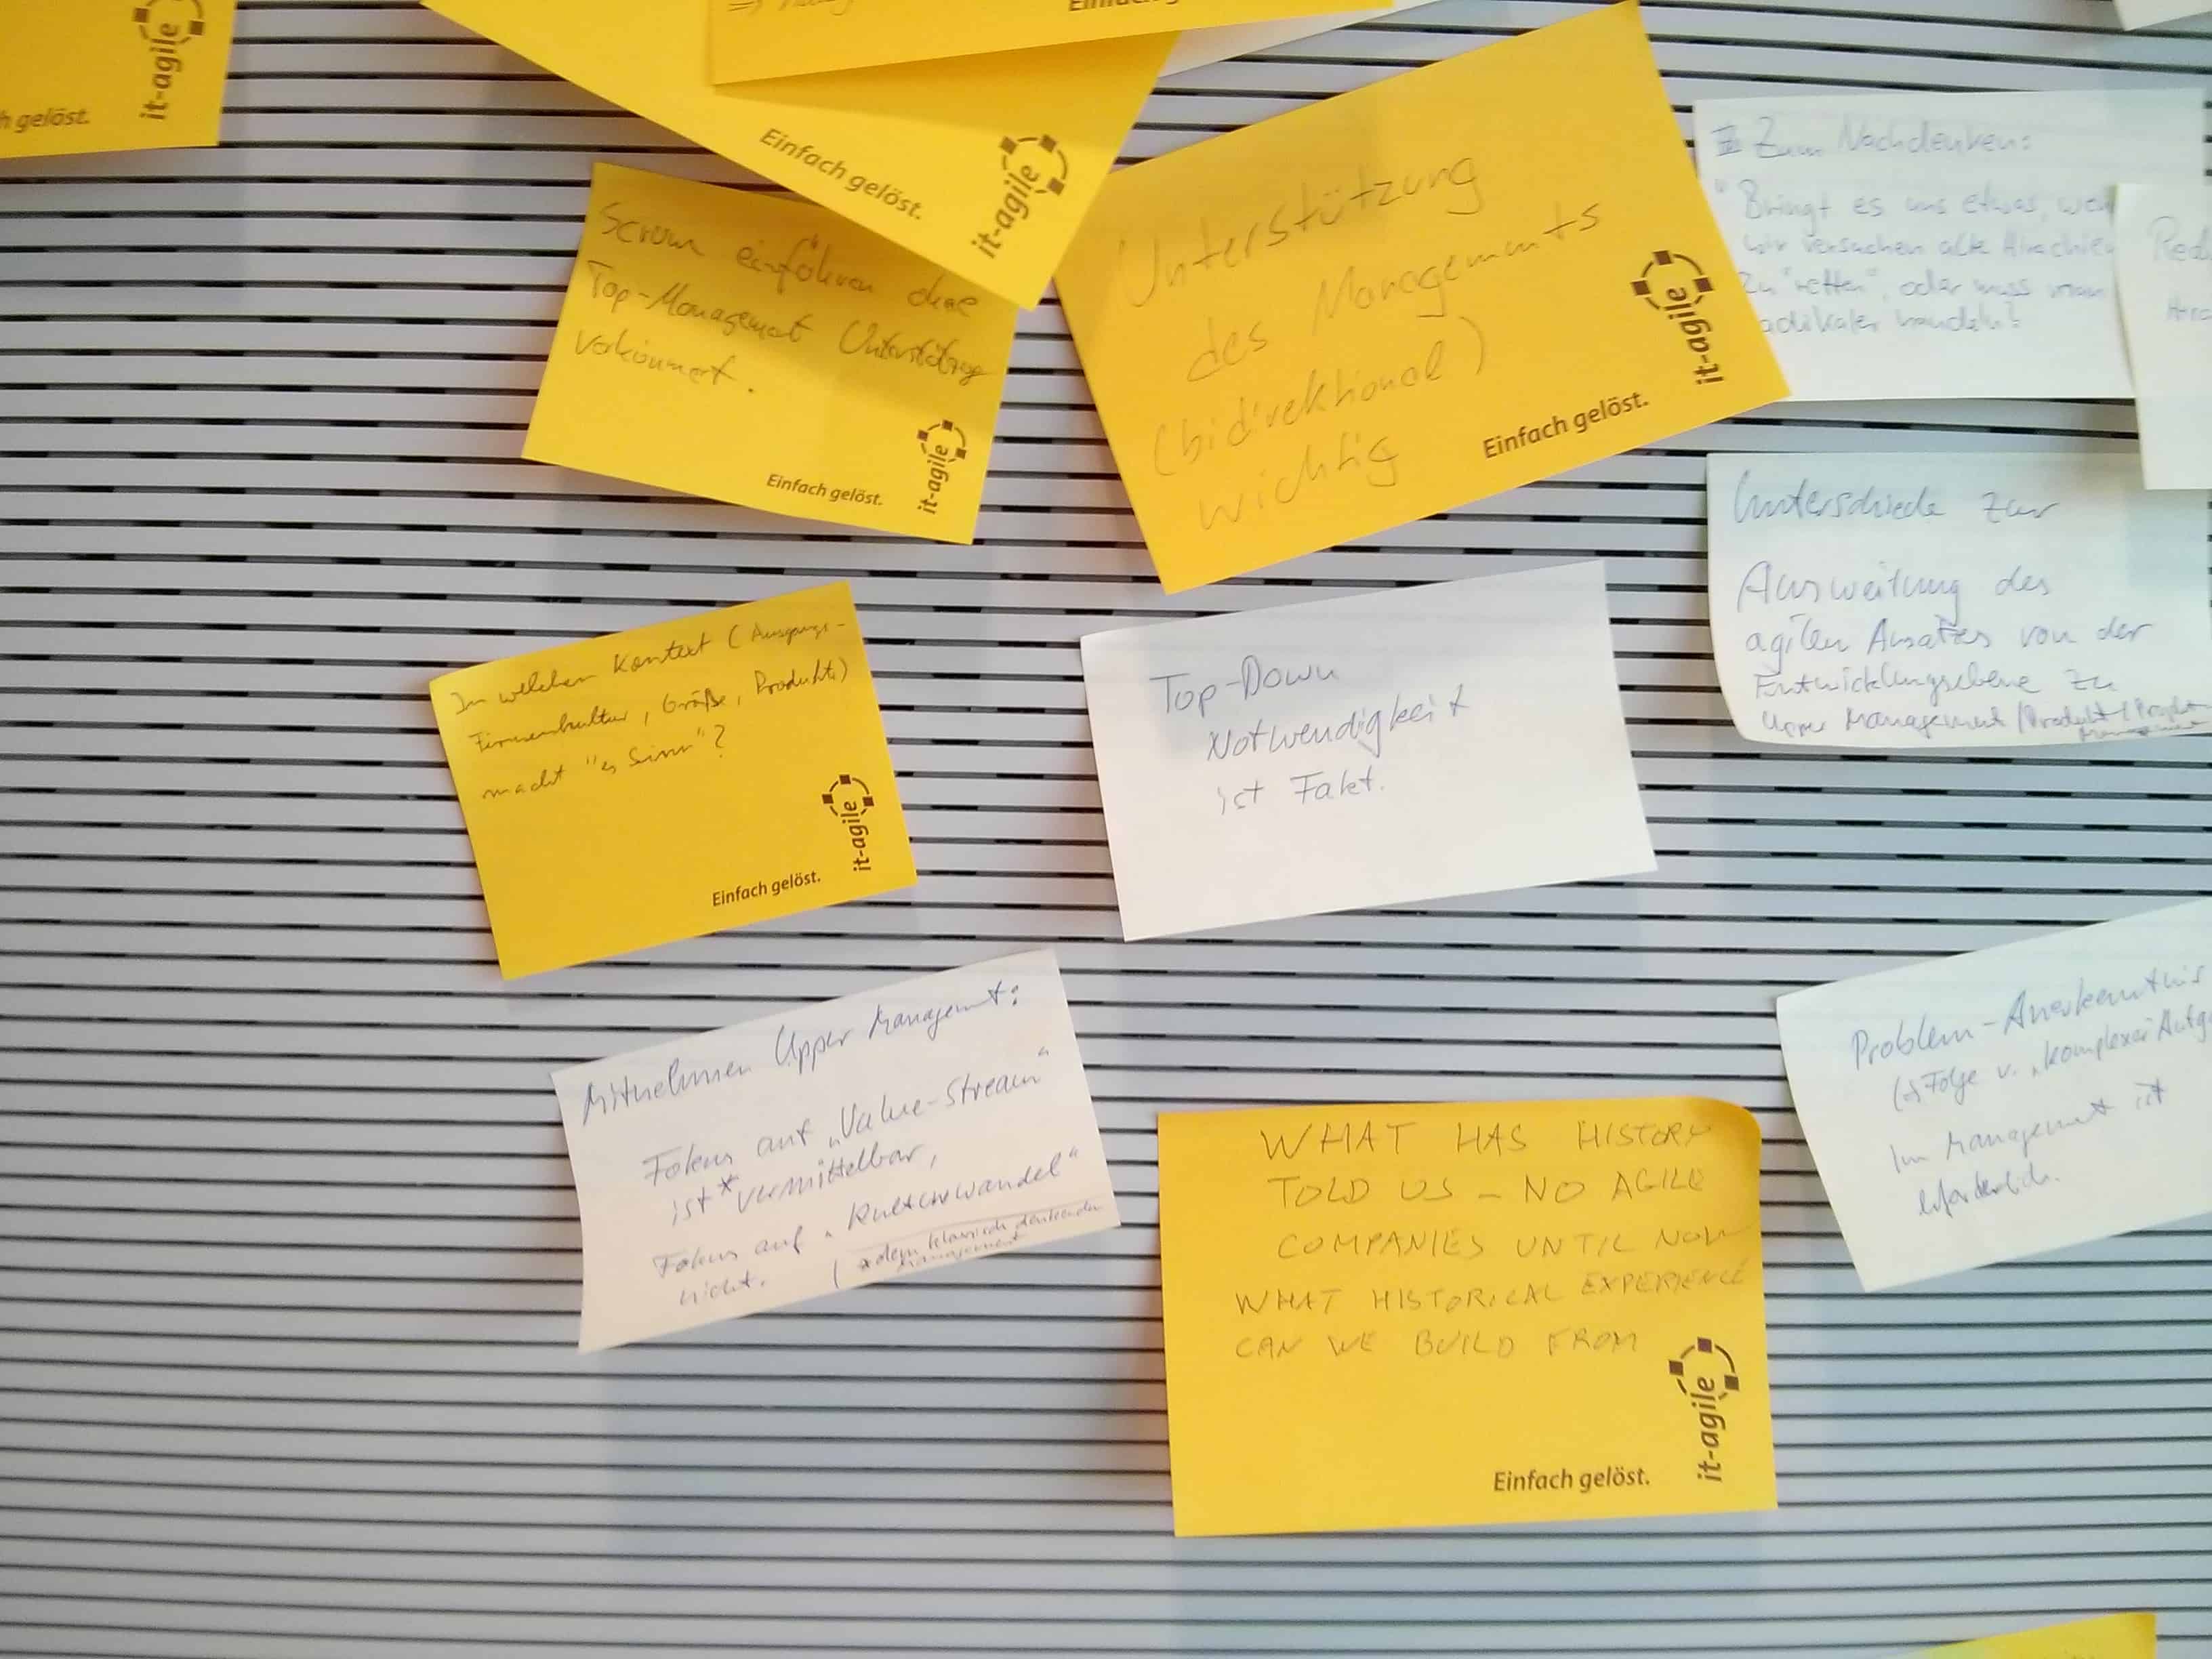 it-agile
h gelöst.
Einfach gelöst.
it-agile
Scrum einführen ohne
Top-Management Unterstützung
verkümmert.
Einfach gelöst.
it-agile
Unterstützung
des Managements
(bidirektional)
wichtig
Einfach gelöst.
it-agile
Zum Nachdenken:
"Bringt es uns etwas, wen
wir versuchen alte
zu "retten", oder muss man
adikaler handeln?
Red
Unterschiede zur
Ausweitung des
agilen Ansatzes von der
Entwicklungsebene zu
Upper Management / Produkt- / Projekt-
Management
In welchem Kontext (Ausgangs-
Firmenkultur, Größe, Produkte)
macht "es Sinn"?
Einfach gelöst.
it-agile
Top-Down
Notwendigkeit
ist Fakt.
Mitnehmen Upper Managemt:
Fokus auf „Value-Stream“
ist* vermittelbar,
Fokus auf „Kulturwandel“
nicht. (*dem klassisch denkenden
Management
Problem-Anerkenntnis
Folge v. „komplexer Aufg
im Management ist
erforderlich.
WHAT HAS HISTORY
TOLD US - NO AGILE
COMPANIES UNTIL NOW
WHAT HISTORICAL EXPERIENCE
CAN WE BUILD FROM
Einfach gelöst.
it-agile